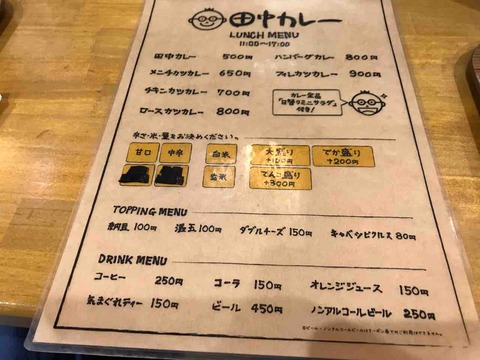 田中カレー
LUNCH MENU
11:00〜17:00
田中カレー 500円 ハンバーグカレー 800円
メンチカツカレー 650円 フィレカツカレー 900円
チキンカツカレー 700円
ロースカツカレー 800円
カレー全品
「日替りミニサラダ」
付き!
辛さ・米・量をお決めください。
甘口 中辛 白米 大盛り +100円 でか盛り +200円
玄米 てんこ盛り +300円
TOPPING MENU
納豆 100円 温玉 100円 ダブルチーズ 150円 キャベツピクルス 80円
DRINK MENU
コーヒー 250円 コーラ 150円 オレンジジュース 150円
気まぐれティー 150円 ビール 450円 ノンアルコールビール 250円